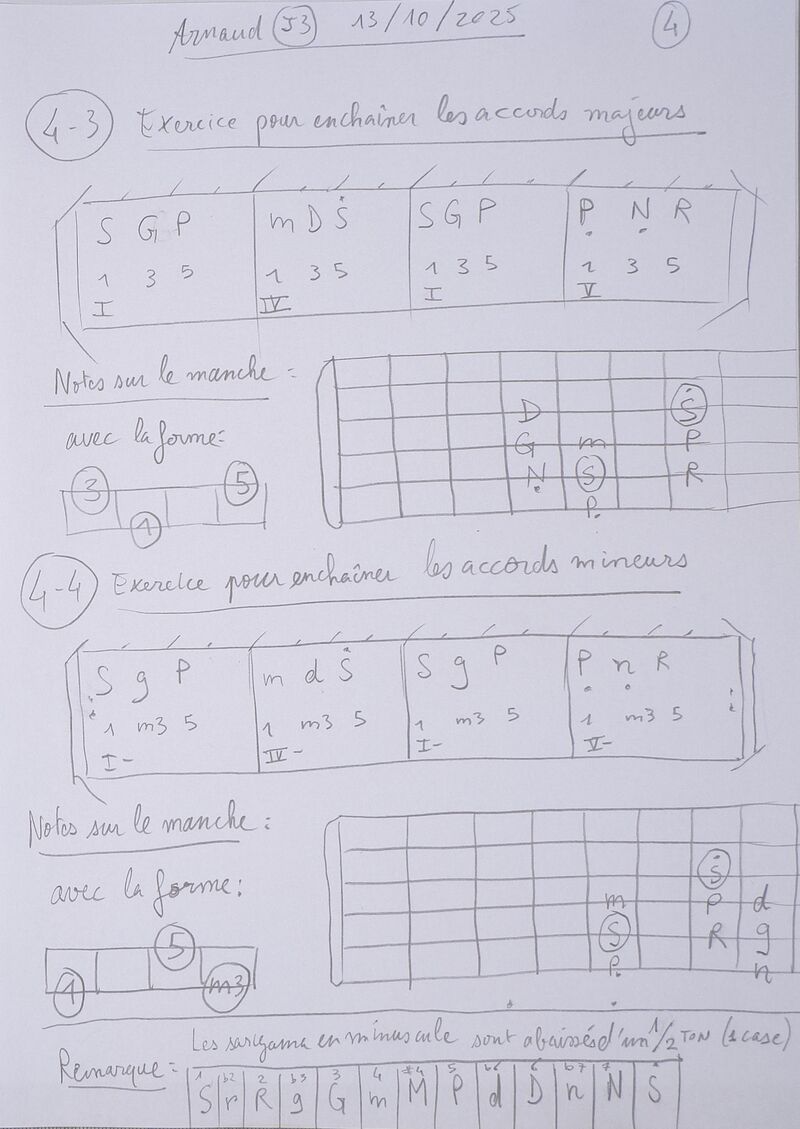 Arnaud J3 13/10/2025 4
4-3 Exercice pour enchaîner les accords majeurs
S G P m D Ṡ S G P P̣ Ṇ R
1 3 5 1 3 5 1 3 5 1 3 5
I IV I V
Notes sur le manche :
avec la forme :
3 5
1
D Ṡ
G m P
Ṇ S R
P̣
4-4 Exercice pour enchaîner les accords mineurs
S g P m d Ṡ S g P P̣ ṇ R
1 m3 5 1 m3 5 1 m3 5 1 m3 5
I- IV- I- V-
Notes sur le manche :
avec la forme :
5
1 m3
Ṡ
m P d
S R g
P̣ n
Remarque : Les sargama en minuscule sont abaissés d'un 1/2 TON (1 case)
1 b2 2 b3 3 4 #4 5 b6 6 b7 7
S r R g G m M P d D n N Ṡ